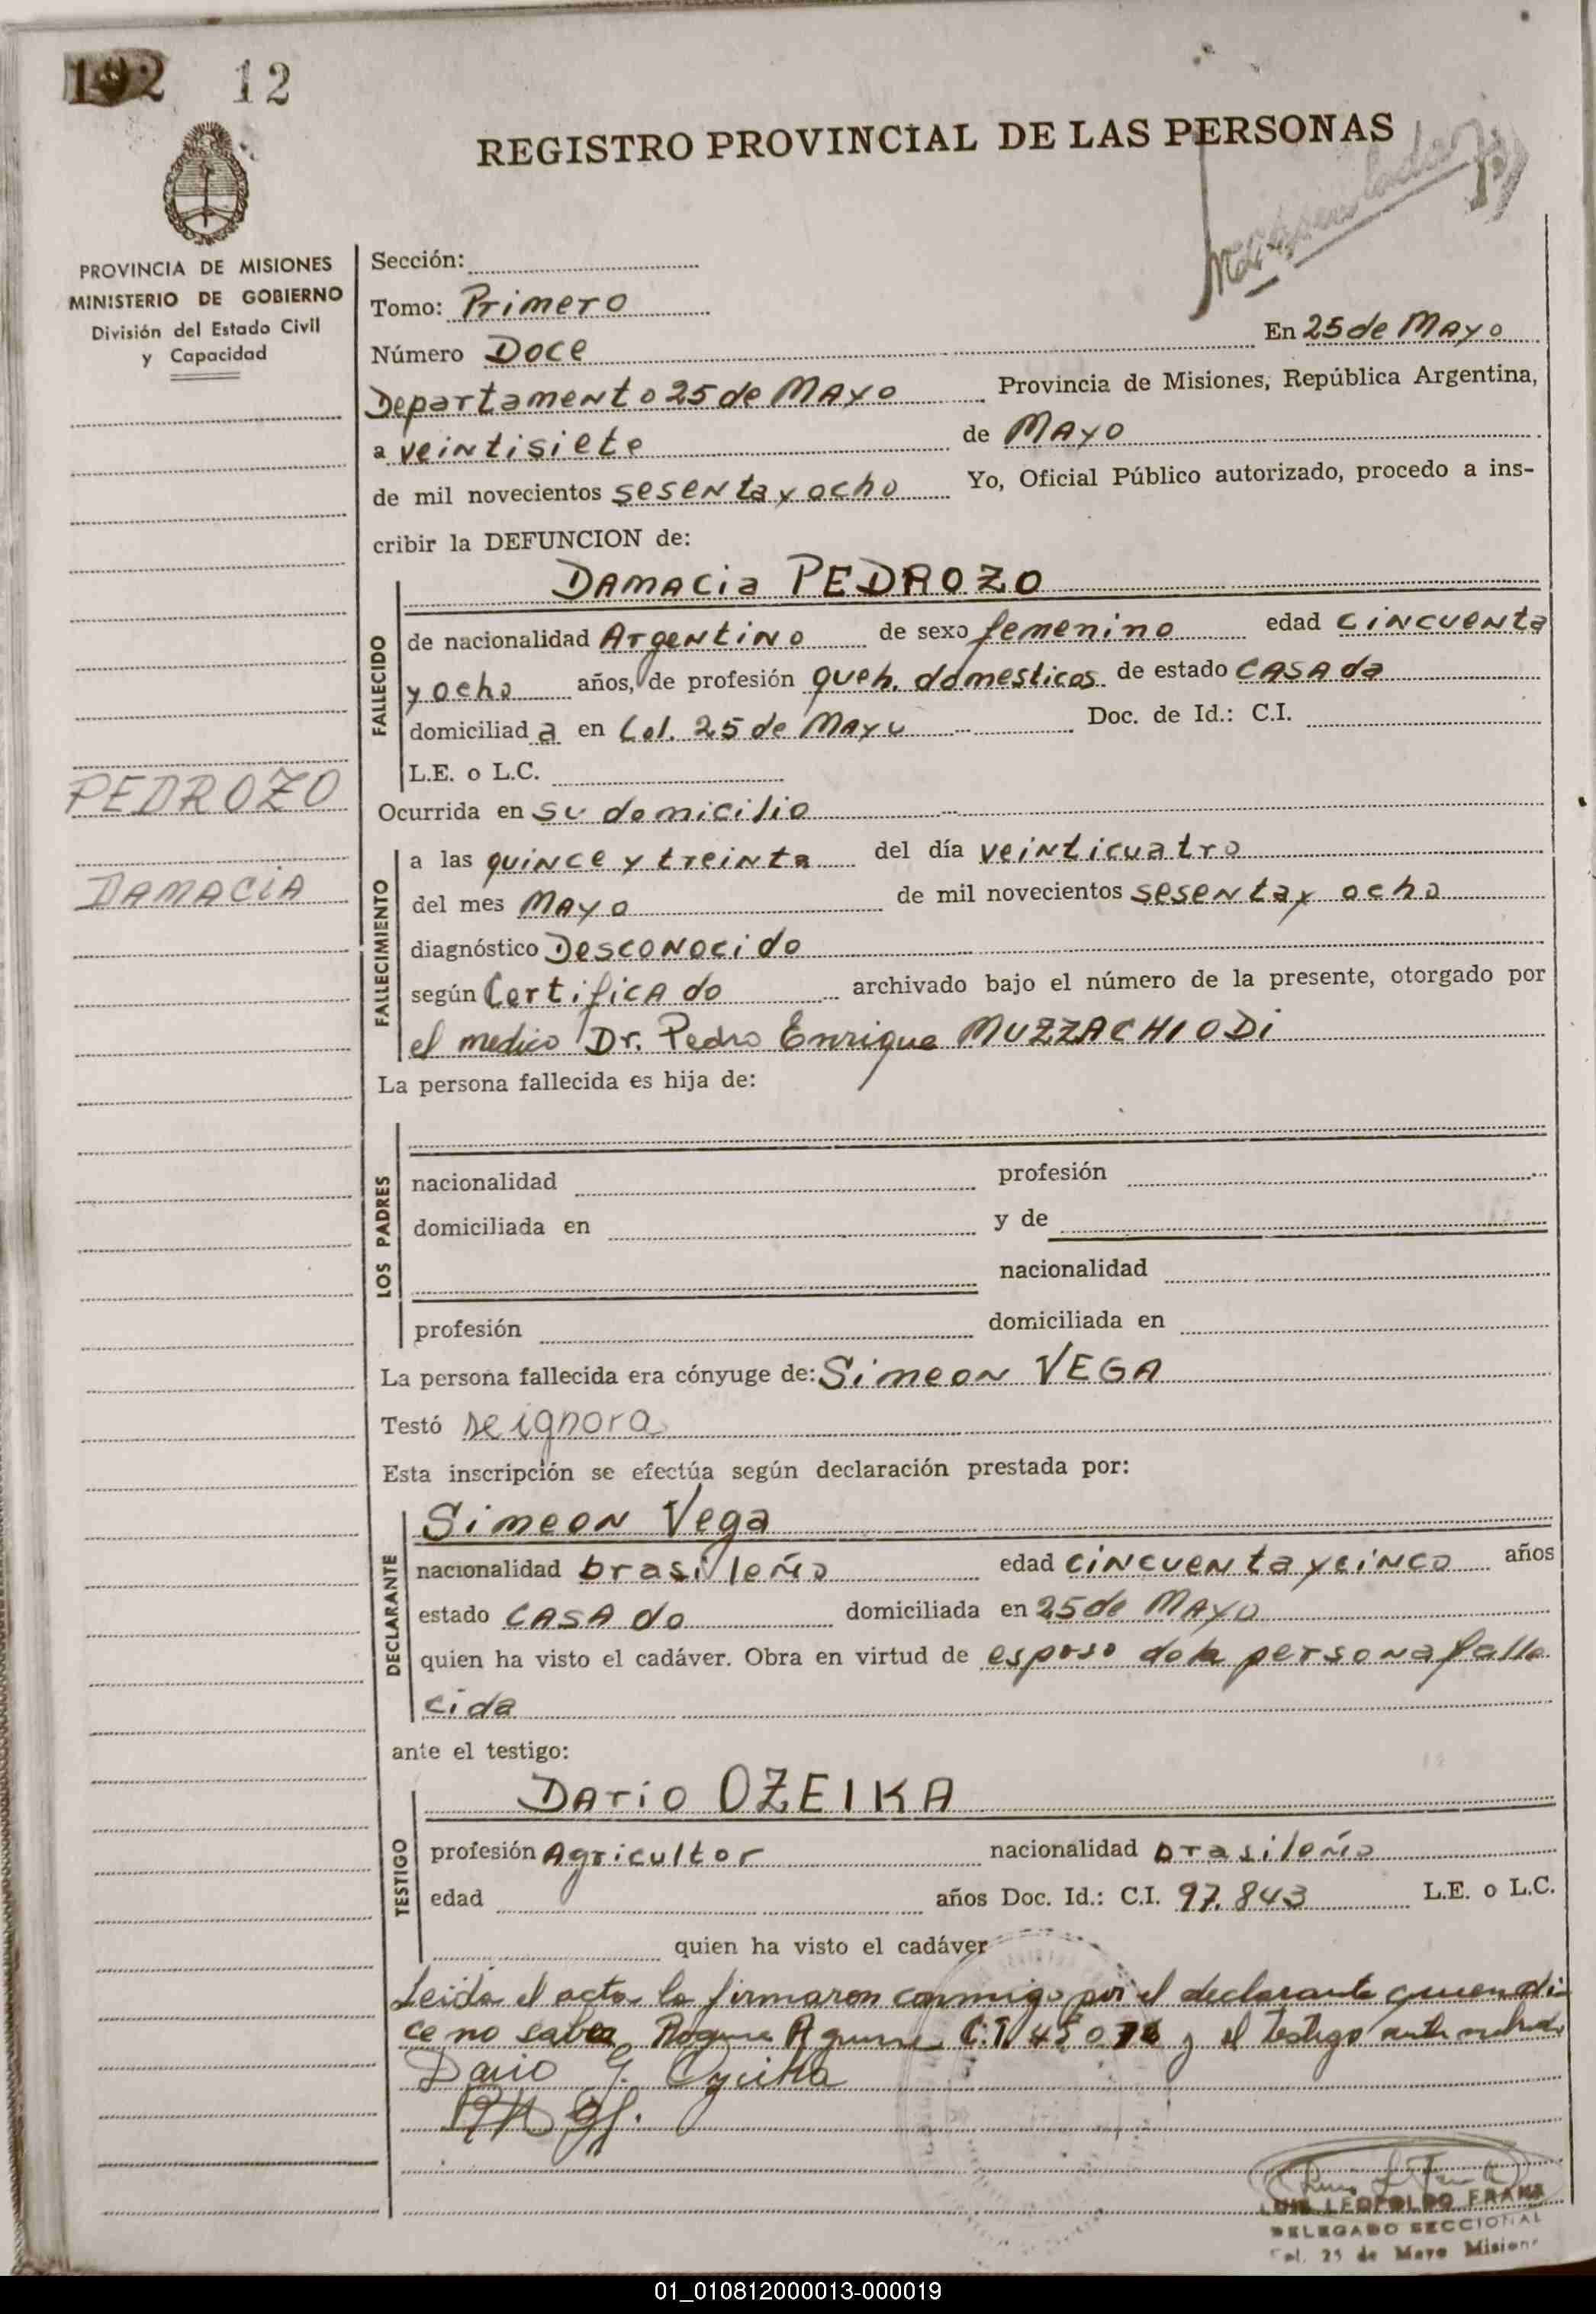 192 12
REGISTRO PROVINCIAL DE LAS PERSONAS
PROVINCIA DE MISIONES
MINISTERIO DE GOBIERNO
División del Estado Civil
y Capacidad
Sección:
Tomo: Primero
Número Doce En 25 de Mayo
Departamento 25 de Mayo Provincia de Misiones, República Argentina,
a veintisiete de Mayo
de mil novecientos sesenta y ocho Yo, Oficial Público autorizado, procedo a ins-
cribir la DEFUNCION de:
FALLECIDO
Damacia PEDROZO
de nacionalidad Argentino de sexo femenino edad cincuenta
y ocho años, de profesión queh. domesticos de estado casada
domiciliad a en Col. 25 de Mayo Doc. de Id.: C.I.
L.E. o L.C.
PEDROZO
DAMACIA
Ocurrida en su domicilio
FALLECIMIENTO
a las quince y treinta del día veinticuatro
del mes Mayo de mil novecientos sesenta y ocho
diagnóstico Desconocido
según Certificado archivado bajo el número de la presente, otorgado por
el medico Dr. Pedro Enrique MUZZACHIODI
La persona fallecida es hija de:
LOS PADRES
nacionalidad profesión
domiciliada en y de
nacionalidad
profesión domiciliada en
La persona fallecida era cónyuge de: Simeon VEGA
Testó se ignora
Esta inscripción se efectúa según declaración prestada por:
DECLARANTE
Simeon Vega
nacionalidad brasileño edad cincuenta y cinco años
estado casado domiciliada en 25 de Mayo
quien ha visto el cadáver. Obra en virtud de esposo de la persona falle
cida
ante el testigo:
TESTIGO
Dario OZEIKA
profesión Agricultor nacionalidad brasileño
edad años Doc. Id.: C.I. 97.843 L.E. o L.C.
quien ha visto el cadáver
Leida el acta la firmaron conmigo por el declarante quien di-
ce no saber Roque Aguirre C.I. y el testigo
Dario
LUIS LEOPOLDO FRANK
DELEGADO SECCIONAL
Col. 25 de Mayo Misiones
01_010812000013-000019